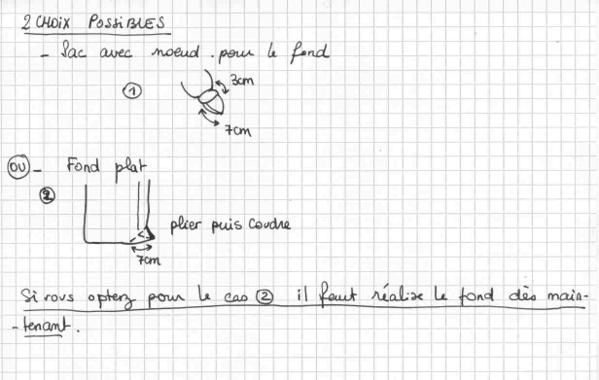 2 CHOIX POSSIBLES
- Sac avec noeud. pour le fond
① 3cm
7cm
OU - Fond plat
②
plier puis coudre
7cm
Si vous optez pour le cas ② il faut réalise le fond dès main-
-tenant.